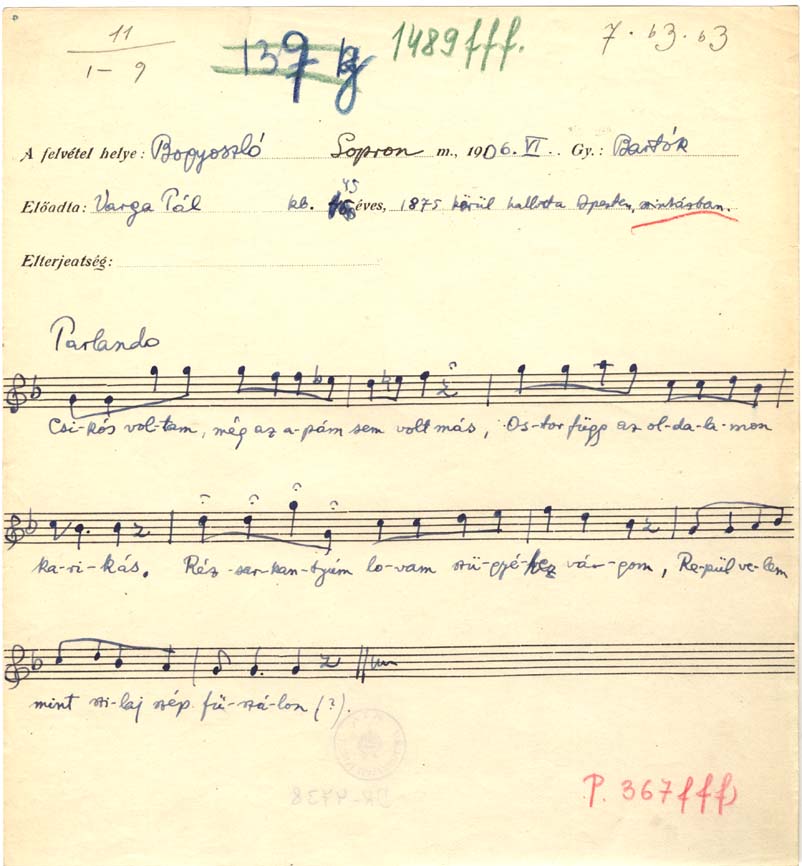 11
1-9
137 kg
1489fff.
7. b3. b3
A felvétel helye: Bogyoszló Sopron m., 1906. VI. Gy.: Bartók
Előadta: Varga Pál kb. 45 éves, 1875 körül hallotta
Elterjeatség:
Parlando
Csi-kós vol-tam, még az a-pám sem volt más, Os-tor függ az ol-da-la-mon
ka-ri-kás. Réz-sar-kan-tyúm lo-vam szü-gyé-hez vár-gom, Re-pül ve-lem
mint szi-laj szép fü-szá-lon (?).
P. 367fff